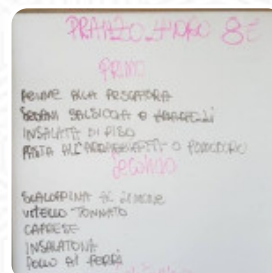 PRANZO 8€
PRIMO
PENNE ALLA PESCATORA
SEDANI SALSICCIA E
INSALATA DI RISO
PASTA ALL'ARRABBIATA O POMODORO
Secondo
SCALOPPINA AL LIMONE
VITELLO TONNATO
CAPRESE
INSALATONA
POLLO AI FERRI